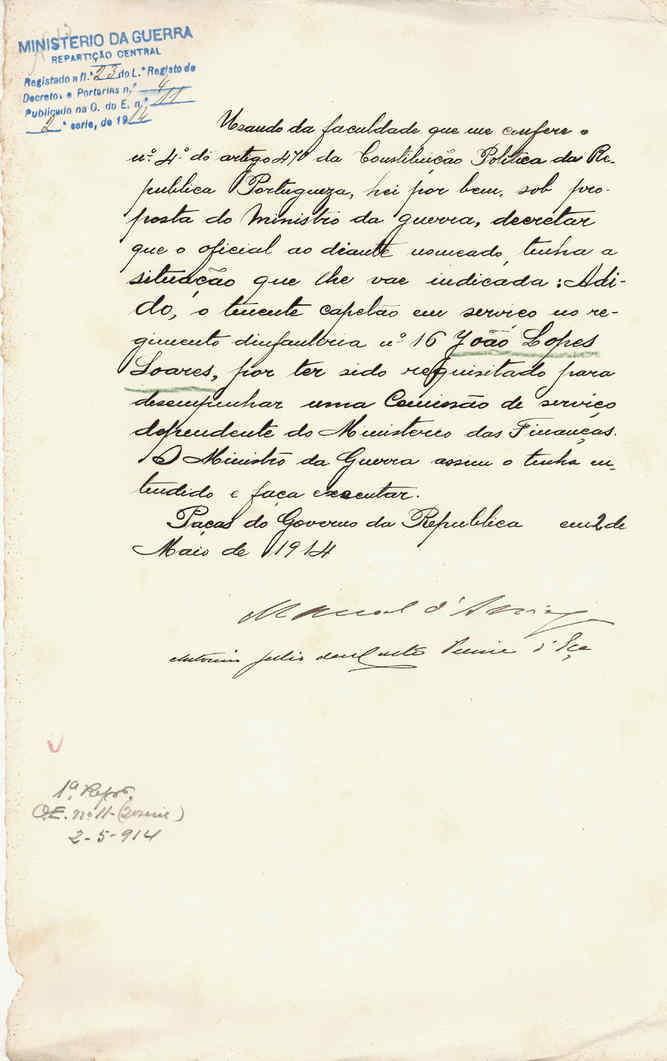 MINISTERIO DA GUERRA
REPARTIÇÃO CENTRAL
Registado a n.º 23 do L.º Registo de
Decretos e Portarias n.º 4
Publicado na O. do E. n.º 11
2ª serie, de 1914
Usando da faculdade que me confere o
nº 4º do artigo 47º da Constituição Politica da Re-
publica Portugueza, hei por bem, sob pro-
posta do Ministro da guerra, decretar
que o oficial ao diante nomeado, tenha a
situação que lhe vae indicada: Adi-
do, o tenente capelão em serviço no re-
gimento dinfanteria nº 16 João Lopes
Soares, por ter sido requisitado para
desempenhar uma Comissão de serviço
dependente do Ministerio das Finanças.
O Ministro da Guerra assim o tenha en-
tendido e faça executar.
Paços do Governo da Republica em 2 de
Maio de 1914
Manuel d'Arriaga
Antonio Julio da Costa Pereira d'Eça
1ª Repar.
O.E. nº 11 (2ª serie)
2-5-914